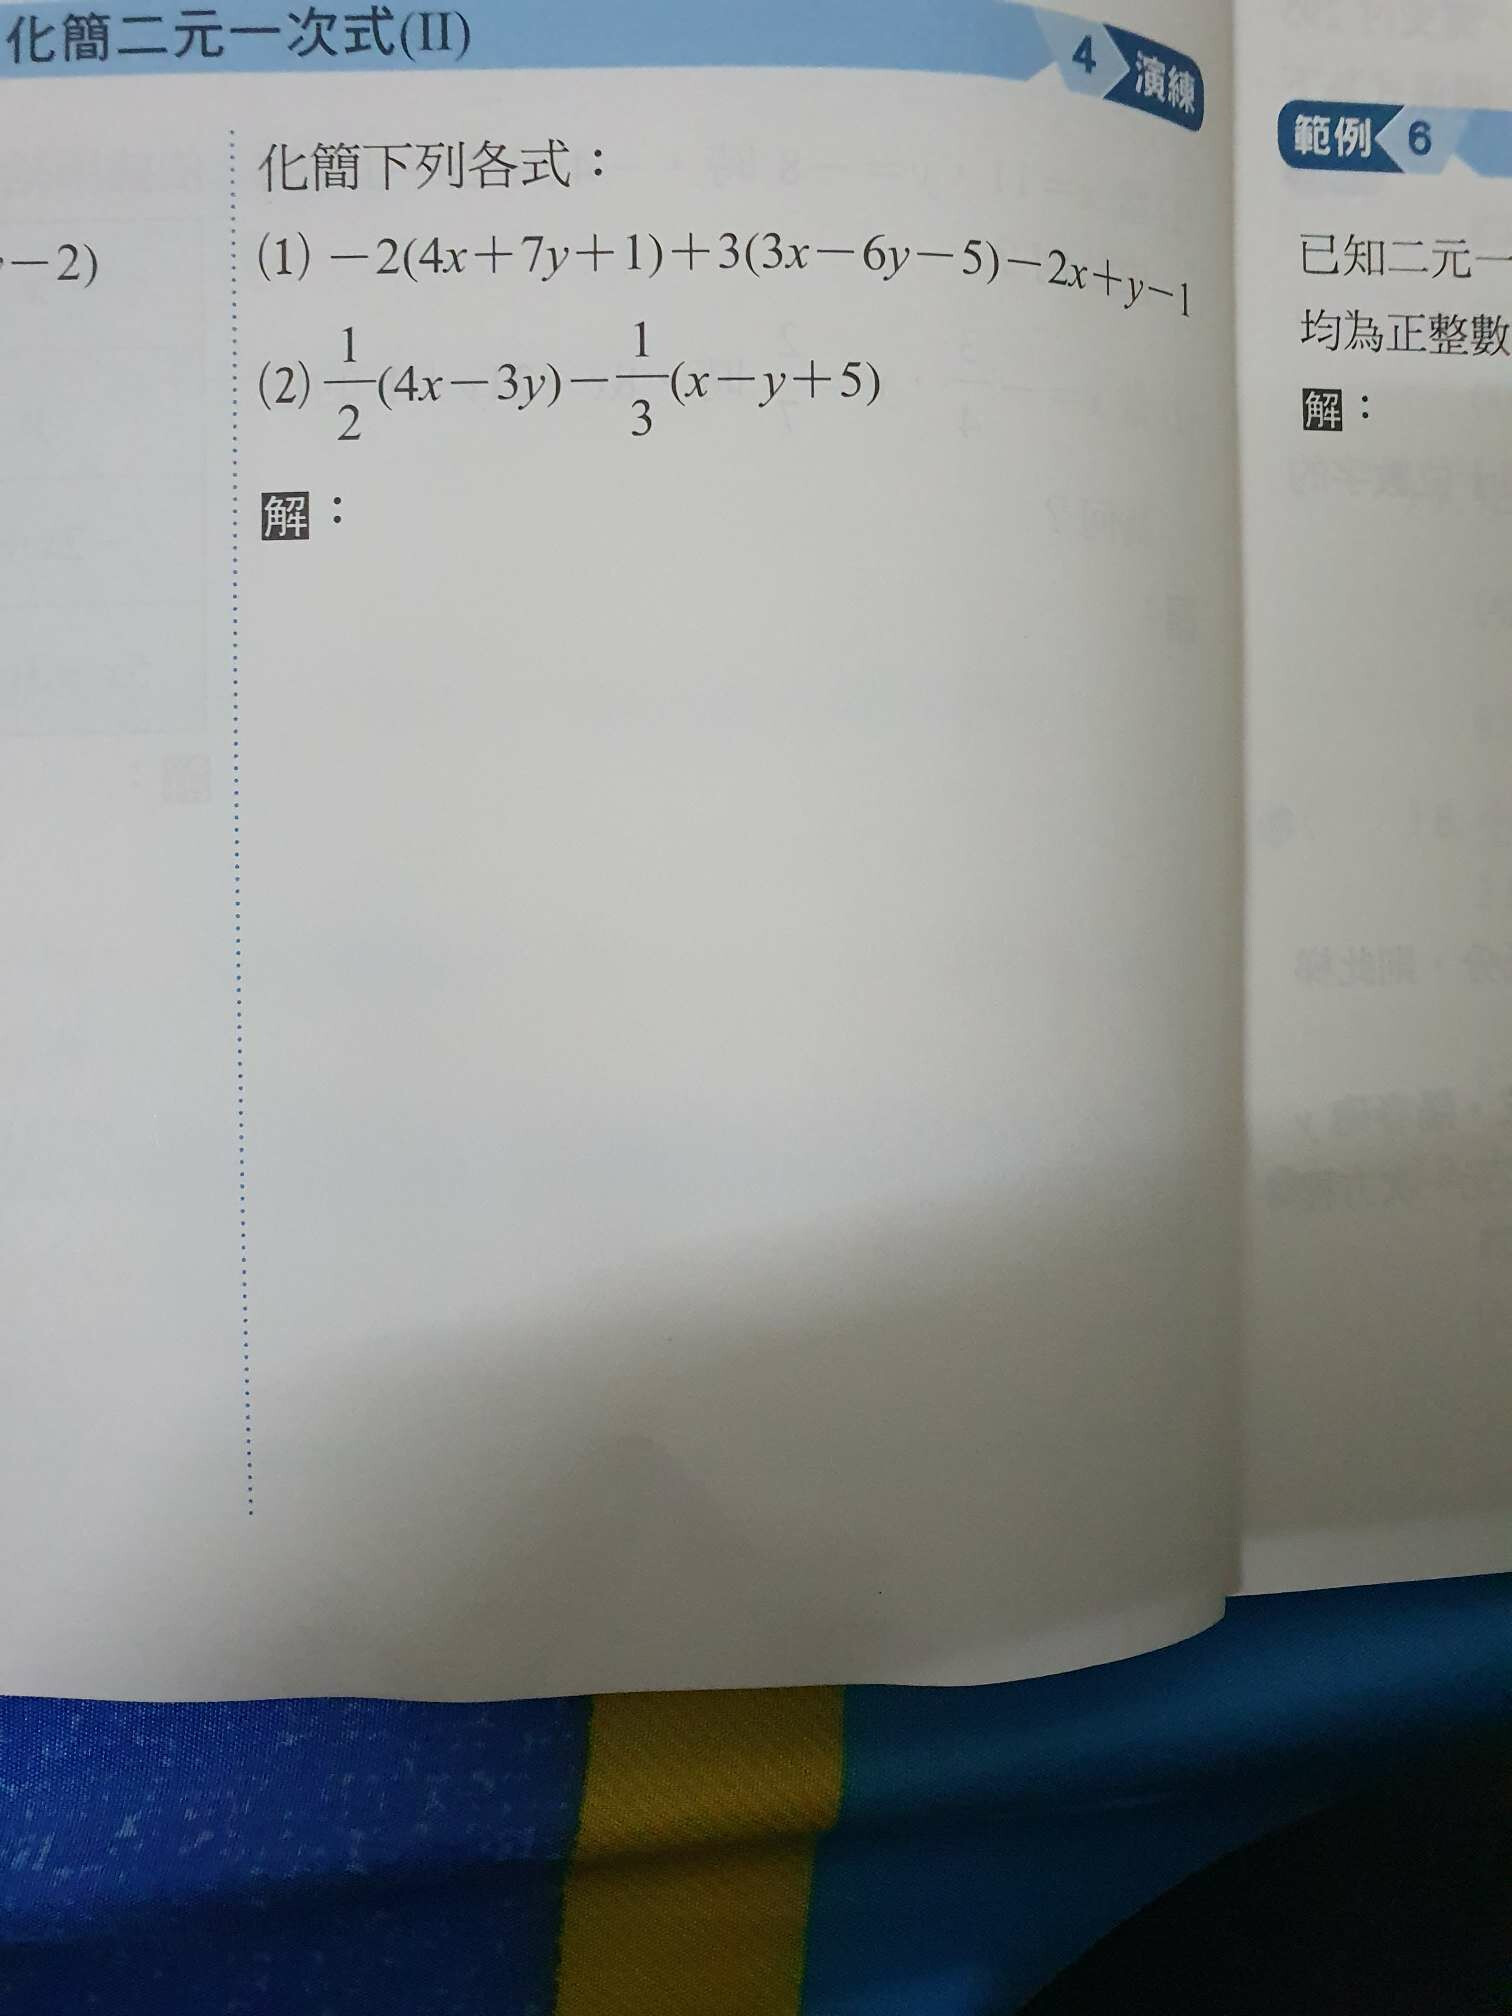 化簡二元一次式(II)
4 演練
化簡下列各式：
(1) −2(4x+7y+1)+3(3x−6y−5)−2x+y−1
(2) \frac{1}{2}(4x−3y)−\frac{1}{3}(x−y+5)
解：
−2)
範例 6
已知二元一
均為正整數
解：